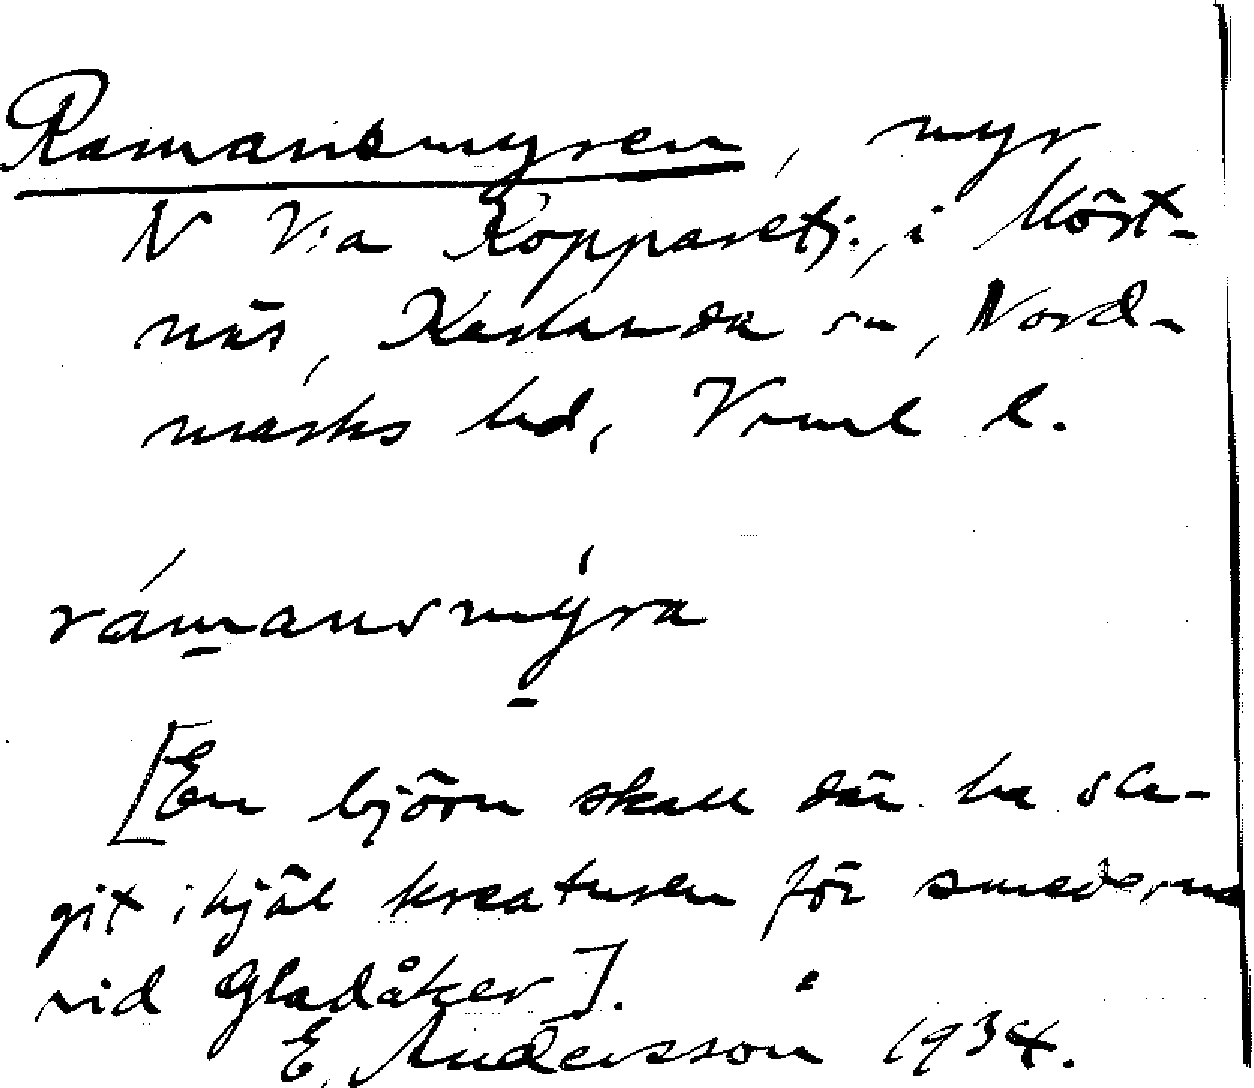 Ramansmyren, myr
N V:a Kopparetj., i Möst-
näs, Karlanda sn, Nord-
marks hd, Vrml l.
rámansmýra
[En björn skall där ha sla-
git ihjäl kreaturen för smederna
vid Gladåker].
E. Andersson 1934.